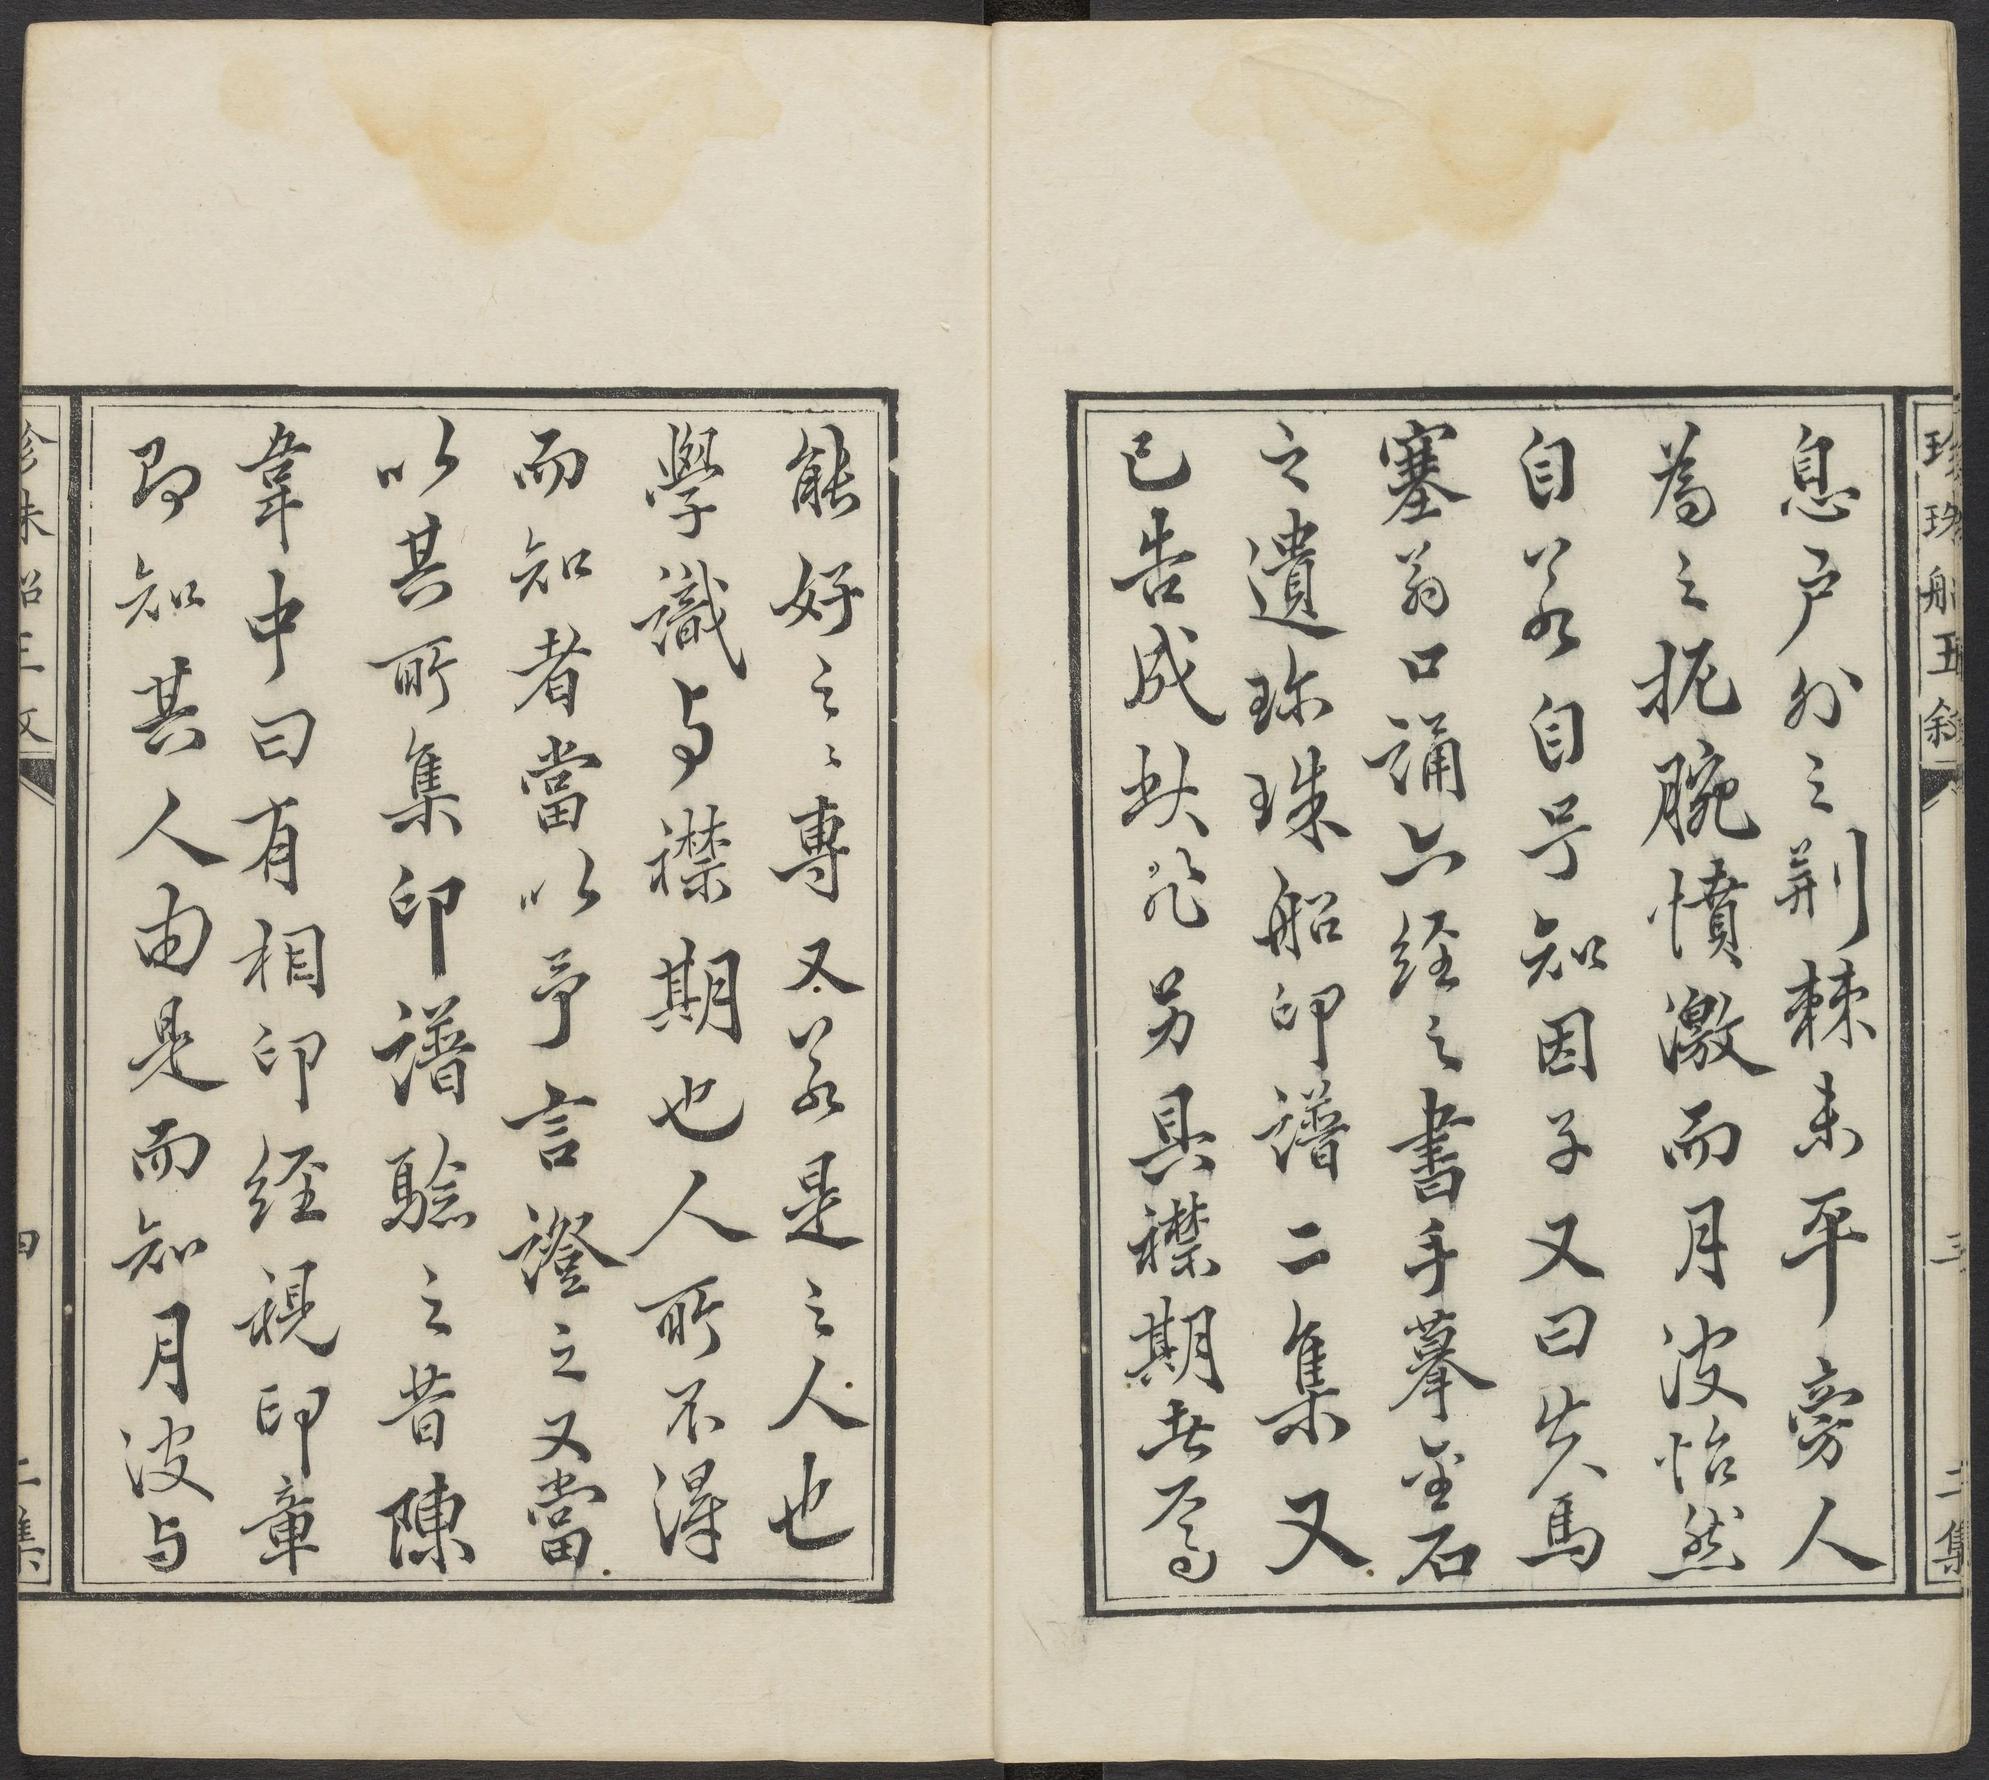 珍珠船五敘
三
二集
息戶外之荊棘未平旁人
為之扼腕憤激而月波怡然
自若自号知因子又曰失馬
塞翁口誦六經之書手摹金石
之遺珎珠船印譜二集又
已告成此非另具襟期者焉
能好之〻專又若是之人也
學識与襟期也人所不得
而知者當以予言證之又當
以其所集印譜驗之昔陳
韋中曰有相印經視印章
即知其人由是而知月波与
四
二集